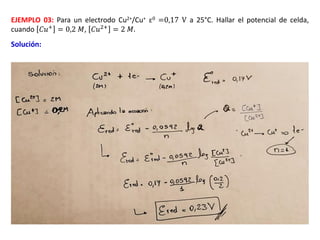 EJEMPLO 03: Para un electrodo Cu²⁺/Cu⁺ ε⁰ =0,17 V a 25°C. Hallar el potencial de celda,
cuando [Cu⁺] = 0,2 M, [Cu²⁺] = 2 M.
Solución:
Solución:
Cu²⁺ + 1e⁻ → Cu⁺ E°red = 0,17V
(2M) (0,2M)
[Cu²⁺] = 2M
[Cu⁺] = 0,2M
Aplicando la ecuación:
Ered = E°red - 0,0592/n log Q
Q = [Cu⁺]/[Cu²⁺]
Cu²⁺ → Cu⁺ ⇒ 1e⁻
n=1
Ered = E°red - 0,0592/n log [Cu⁺]/[Cu²⁺]
Ered = 0,17 - 0,0592/1 log (0,2/2)
Ered = 0,23V